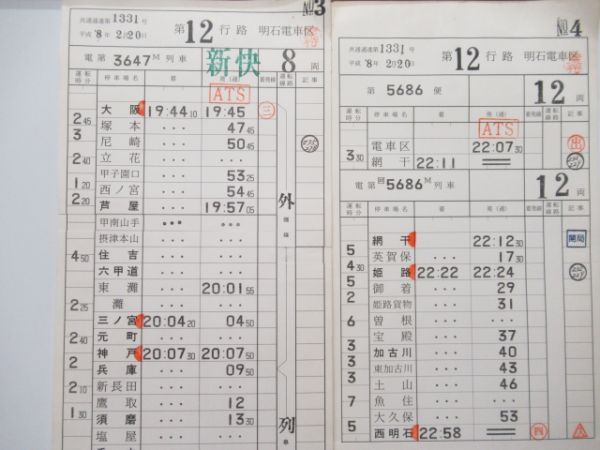 No.3
共通過達第1331号
平成 8年 2月20日
第 12 行路 明石電車区
電 第 3647M 列車 新快 8 両
ATS
運転時分 停車場名 着 発(通) 着発線 運転線路 記事
大阪 19:44 10 19:45 三
2 45 塚本 ・・・ 47 45
3 尼崎 ・・・ 50 45
2 40 立花 ・・・ ・・・
甲子園口 ・・・ 53 25
1 20 西ノ宮 ・・・ 54 45
2 20 芦屋 ・・・ 19:57 05 外
甲南山手 ・・・ ・・・
摂津本山 ・・・ ・・・
4 50 住吉 ・・・ ・・・
六甲道 ・・・ ・・・
東灘 ・・・ 20:01 55
2 25 灘 ・・・ ・・・
三ノ宮 20:04 20 04 50
2 40 元町 ・・・ ・・・
神戸 20:07 30 20:07 50
2 兵庫 ・・・ 09 50
2 10 新長田 ・・・ ・・・
鷹取 ・・・ 12
1 30 須磨 ・・・ 13 30 列
塩屋 ・・・ ・・・
No.4
共通過達第1331号
平成 8年 2月20日
第 12 行路 明石電車区
第 5686 便 12 両
ATS
運転時分 停車場名 着 発(通) 着発線 運転線路 記事
電車区 22:07 30 出
3 30 網干 22:11
電 第 回5686M 列車 12 両
運転時分 停車場名 着 発(通) 着発線 運転線路 記事
網干 22:12 30 開局
5 英賀保 ・・・ 17 30
4 30 姫路 22:22 22:24
5 御着 ・・・ 29
2 姫路貨物 ・・・ 31
6 曽根 ・・・ ・・・
宝殿 ・・・ 37
3 加古川 ・・・ 40
3 東加古川 ・・・ 43
3 土山 ・・・ 46
7 魚住 ・・・ ・・・
大久保 ・・・ 53
5 西明石 22:58 四